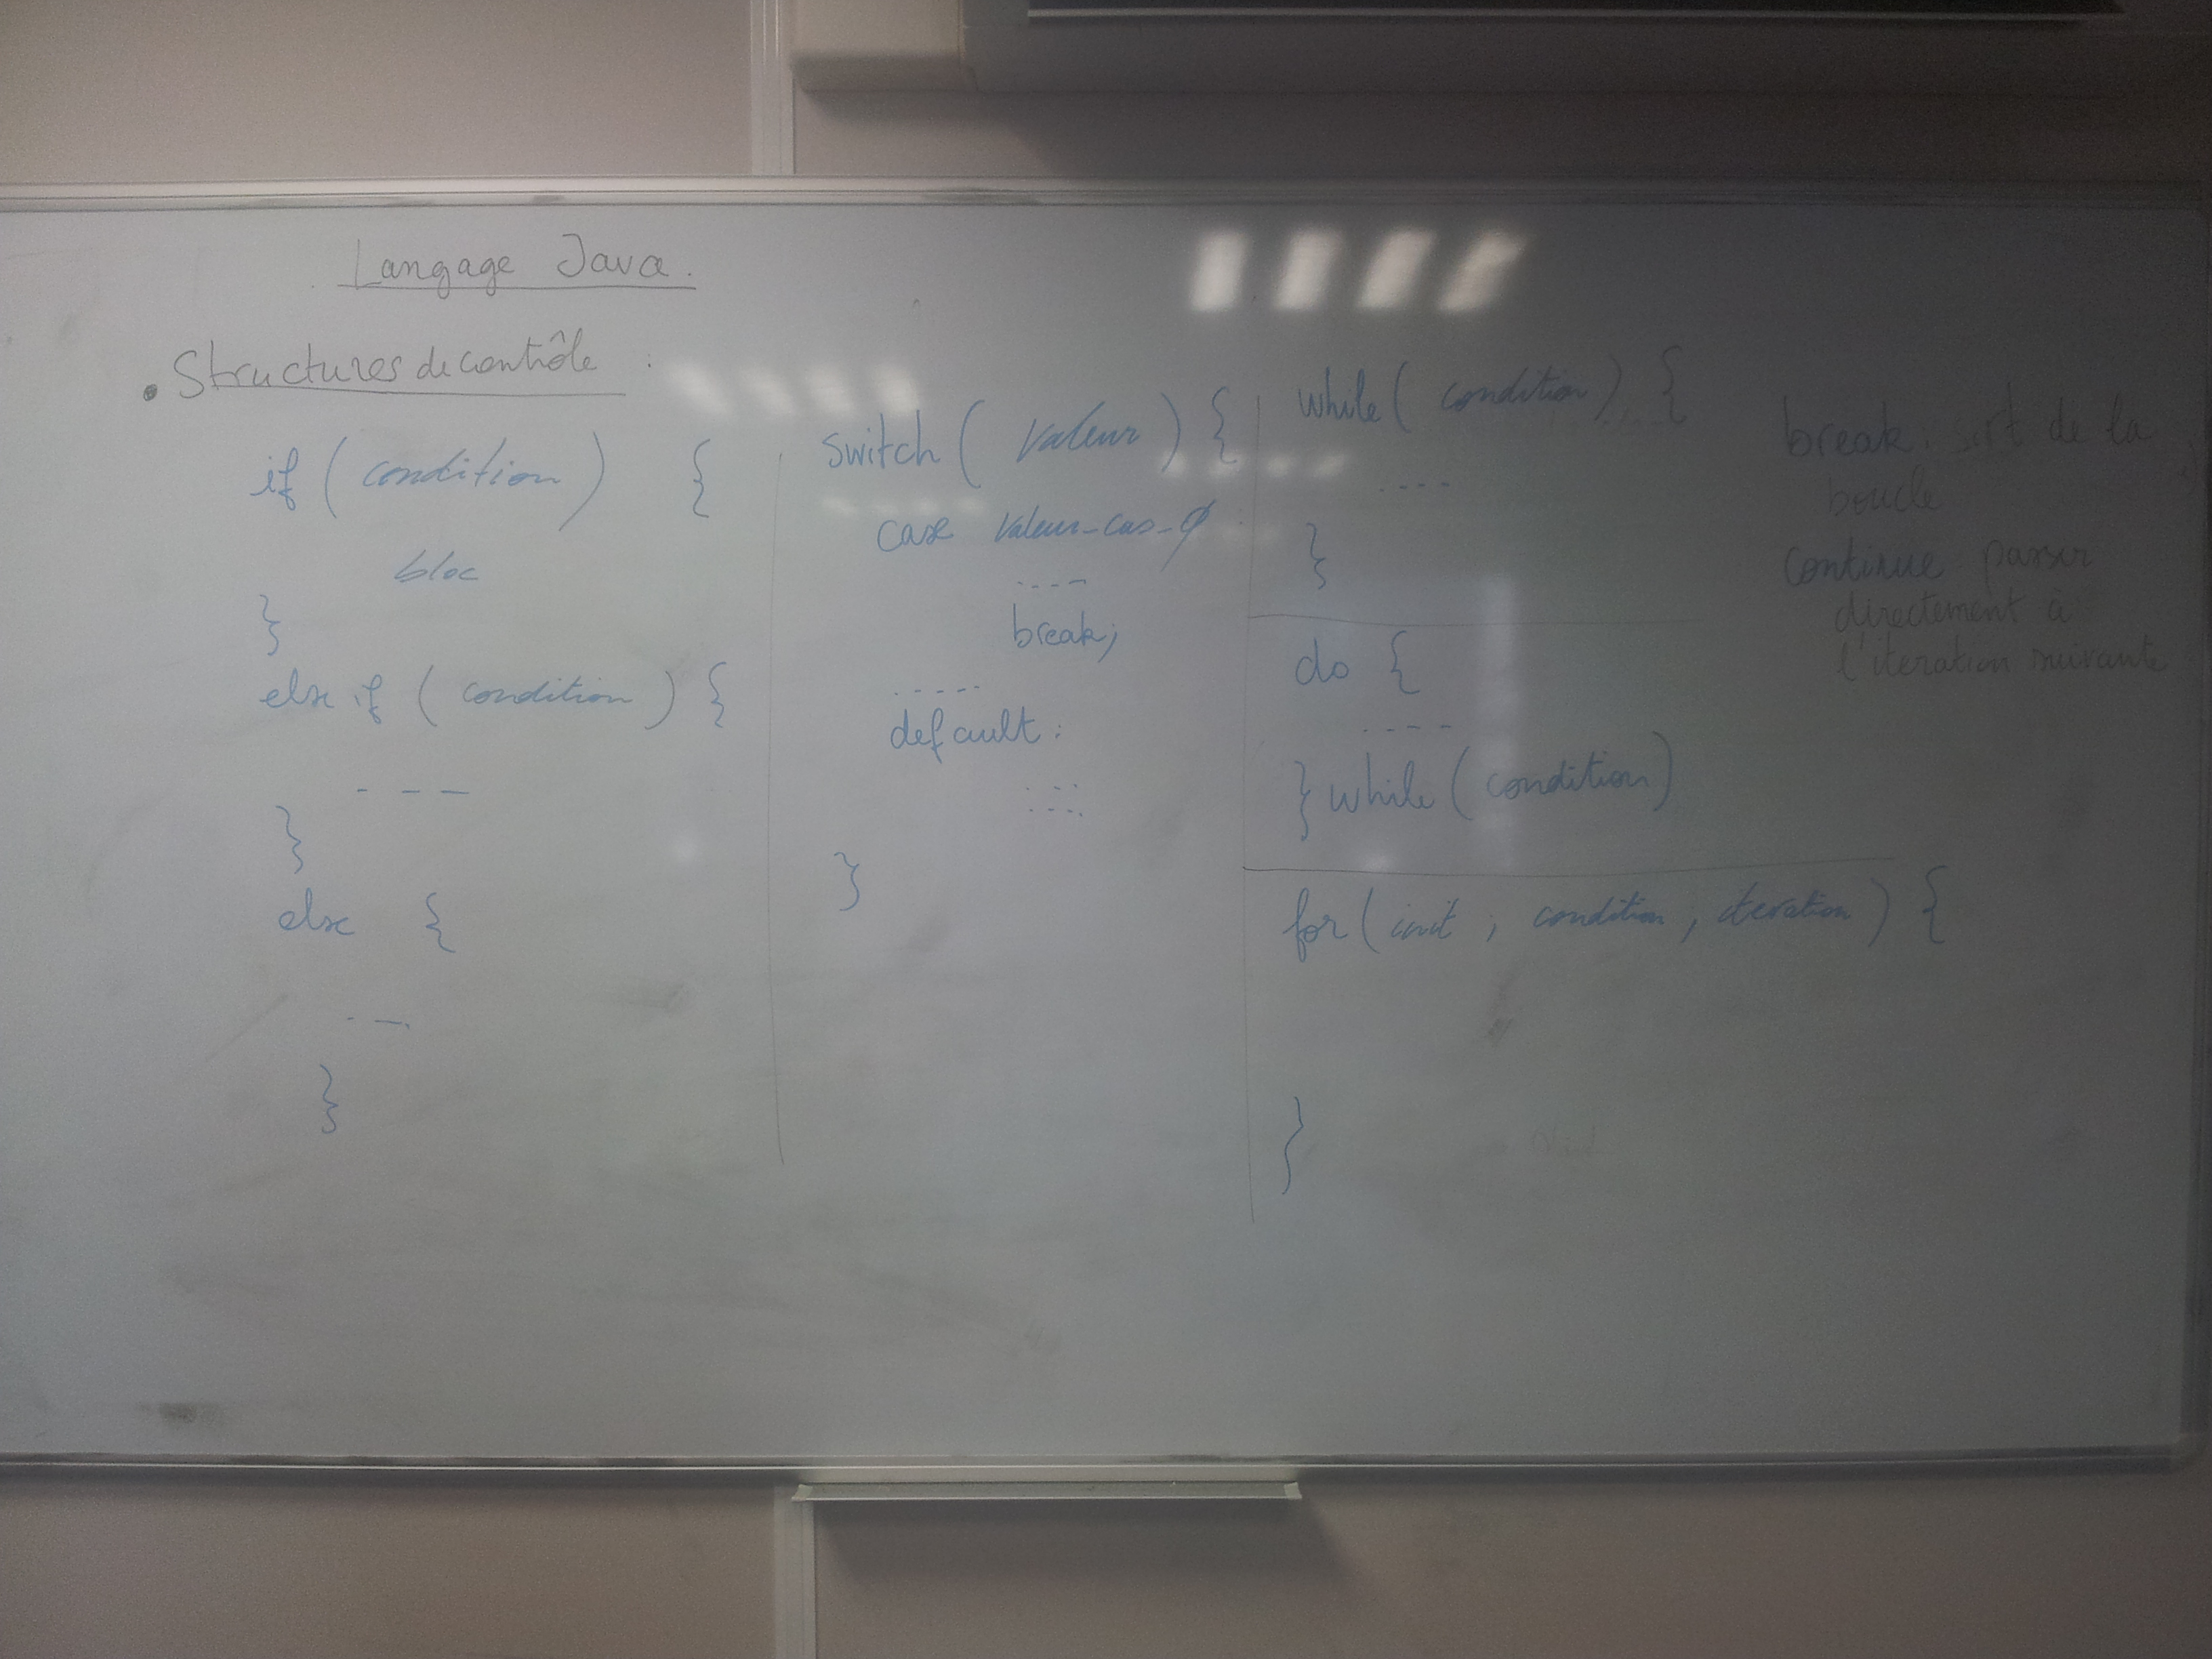 Langage Java.
• Structures de contrôle :
if ( condition ) {
bloc
}
else if ( condition ) {
- - -
}
else {
- -.
}
switch ( valeur ) {
case valeur_cas_0 :
- - - -
break;
- - - - -
default :
}
while ( condition ) {
- - - -
}
do {
- - - -
} while ( condition )
for ( init ; condition ; iteration ) {
}
break sort de la
boucle
continue passer
directement à
l'iteration suivante